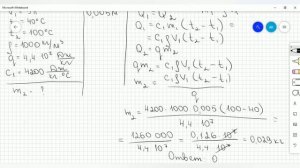 Microsoft Whiteboard
t₁ = 40°C
t₂ = 100°C
ρ = 1000 кг/м³
q = 4,4·10⁷ Дж/кг
C₁ = 4200 Дж/кг·°C
m₂ = ?
0,005м³
Q₁ = Q₂
Q₁ = C₁m₁(t₂-t₁)
Q₁ = C₁ρV₁(t₂-t₁)
Q₂ = qm₂
qm₂ = C₁ρV₁(t₂-t₁)
m₂ = C₁ρV₁(t₂-t₁)/q
m₂ = 4200·1000·0,005(100-40)/4,4·10⁷ =
= 1260 000/4,4·10⁷ = 0,126·10⁷/4,4·10⁷ = 0,029 кг
Ответ 0